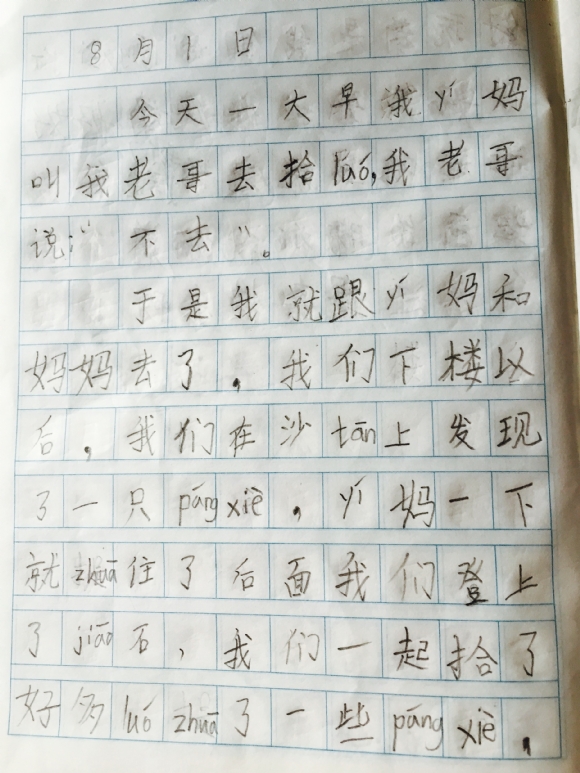 8月1日
今天一大早我yí妈
叫我老哥去拾luó,我老哥
说:“不去”。
于是我就跟yí妈和
妈妈去了,我们下楼以
后,我们在沙tān上发现
了一只páng xiè,yí妈一下
就zhuā住了后面我们登上
了jiāo石,我们一起拾了
好多luó zhuā了一些páng xiè,